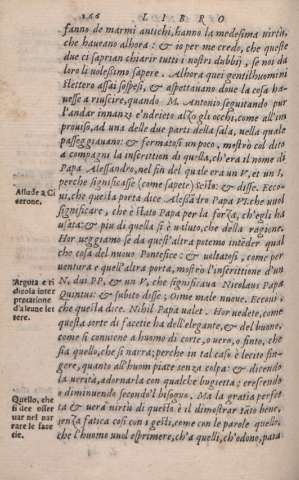 166 LIBRO
fanno de marmi antichi, hanno la medesima virtù,
che haueano alhora: & io per me credo, che queste
due ci saprian chiarir tutti i nostri dubbij, se noi da
loro li volessimo sapere. Alhora quei gentilhuomini
stettero assai sospesi, & aspettauano doue la cosa ha-
uesse a riuscire, quando M. Antonio seguitando pur
l'andar innanzi e'ndrieto alzò gli occhi, come all'im
prouiso, ad una delle due parti della sala, nella quale
passeggiauano: & fermatosi un poco, mostrò col dito
a compagni la inscrittion di quella, ch'era il nome di
Papa Alessandro, nel fin del quale era un V, et un I,
perche significasse (come sapete) Sesto: & disse. Ecco-
ui, che questa porta dice Alessãdro Papa VI. che vuol
significare, che è stato Papa per la forza, ch'egli ha
usata: & piu di quella si è ualuto, che della ragione.
Hor ueggiamo se da quest'altra potemo intẽder qual
che cosa del nuouo Pontefice: & uoltatosi, come per
uentura a quell'altra porta, mostrò l'inscrittione d'un
N, dui PP, & un V, che significaua Nicolaus Papa
Quintus: & subito disse; Oime male nuoue. Eccoui,
che questa dice. Nihil Papa ualet. Hor uedete, come
questa sorte di facetie ha dell'elegante, & del buono,
come si conuiene a huomo di corte, o uero, o finto, che
sia quello, che si narra; perche in tal caso è lecito fin-
gere, quanto all'huom piace senza colpa: & dicendo
la uerità, adornarla con qualche bugietta; crescendo
o diminuendo secondo'l bisogno. Ma la gratia perfet
ta & uera virtù di questo è il dimostrar tãto bene,
senza fatica cosi con i gesti, come con le parole quello,
che l'huomo uuol esprimere, ch'a quelli, ch'odono, paia
Allude a Ci
cerone.
Argutia e ri
dicola inter
pretatione
d'alcune let
tere.
Quello, che
si dee osser
uar nel nar
rare le face
tie.